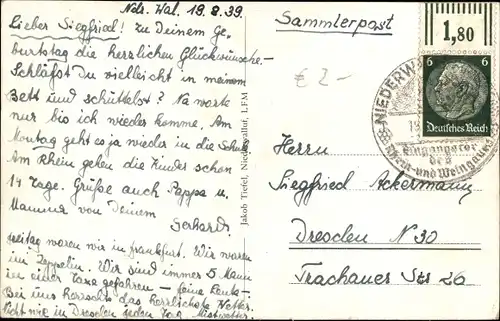 Ndr. Wal. 18.8.39.
Lieber Siegfried! Zu Deinem Ge-
burtstag die herzlichen Glückwünsche.
Schläfst Du vielleicht in meinem
Bett und schüttelst? Na warte
nur bis ich wieder komme. Am
Montag geht es ja wieder in die Schule
Am Rhein gehen die Kinder schon
14 Tage. Grüße auch Pappa u.
Mamma von Deinem
Gerhard.
Freitag waren wir in Frankfurt. Wir waren
im Zeppelin. Wir sind immer 5 Mann
in einer Taxe gefahren – feine Leute –
Bei uns herrscht das herrlichste Wetter.
Nicht wie in Dresden jeden Tag Mistwetter
Jakob Tiefel, Niederwalluf, LFM
Sammlerpost
€ 2-
1,80
6 6
Deutsches Reich
NIEDERW
Eingangstor
des
Rhein- und Weingaues
Herrn
Siegfried Ackermann
Dresden N 30
Trachauer Str 26